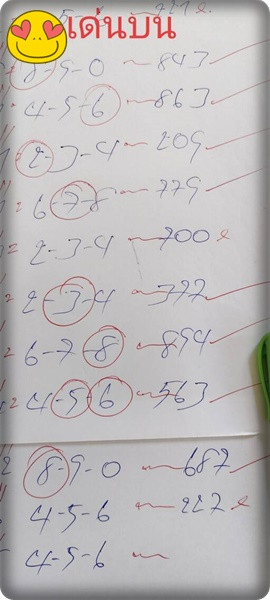 เด่นบน
8-9-0 ~ 843
4-5-6 ~ 863
2-3-4 ~ 209
6-7-8 ~ 779
2-3-4 ~ 700 x
2-3-4 ~ 377
6-7-8 ~ 894
4-5-6 ~ 563
8-9-0 ~ 687
4-5-6 ~ 227 x
4-5-6 ~